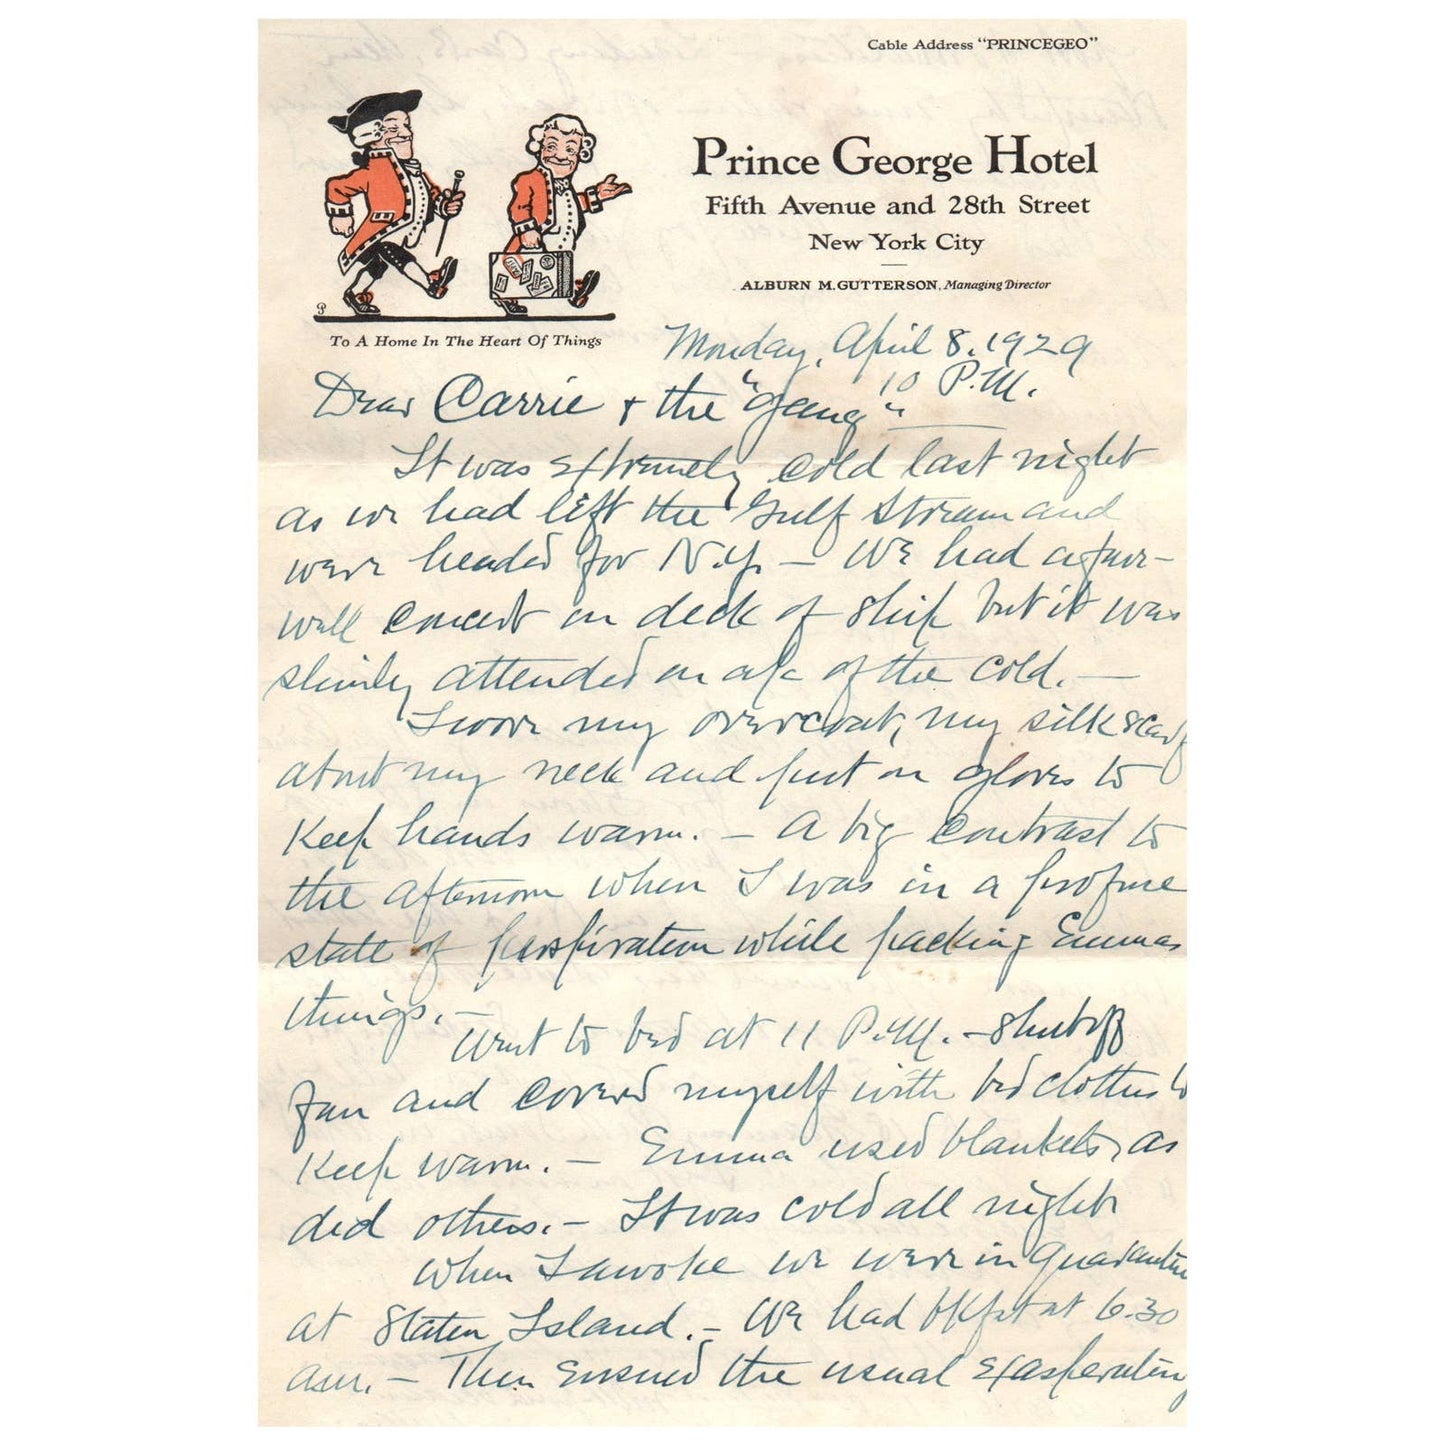 Cable Address "PRINCEGEO"
Prince George Hotel
Fifth Avenue and 28th Street
New York City
ALBURN M. GUTTERSON, Managing Director
To A Home In The Heart Of Things
Monday, April 8, 1929
10 P.M.
Dear Carrie & the "gang"
It was extremely cold last night
as we had left the Gulf Stream and
were headed for N.Y. - We had a fare-
well concert on deck of ship but it was
slimly attended on a/c of the cold. -
I wore my overcoat, my silk scarf
about my neck and put on gloves to
keep hands warm. - A big contrast to
the afternoon when I was in a profuse
state of perspiration while packing Emmas
things. -
Went to bed at 11 P.M. - Shut off
fan and covered myself with bed clothes to
keep warm. - Emma used blankets, as
did others. - It was cold all night
When I awoke we were in Quarantine
at Staten Island. - We had bkfst at 6.30
a.m. - Then ensued the usual exasperating